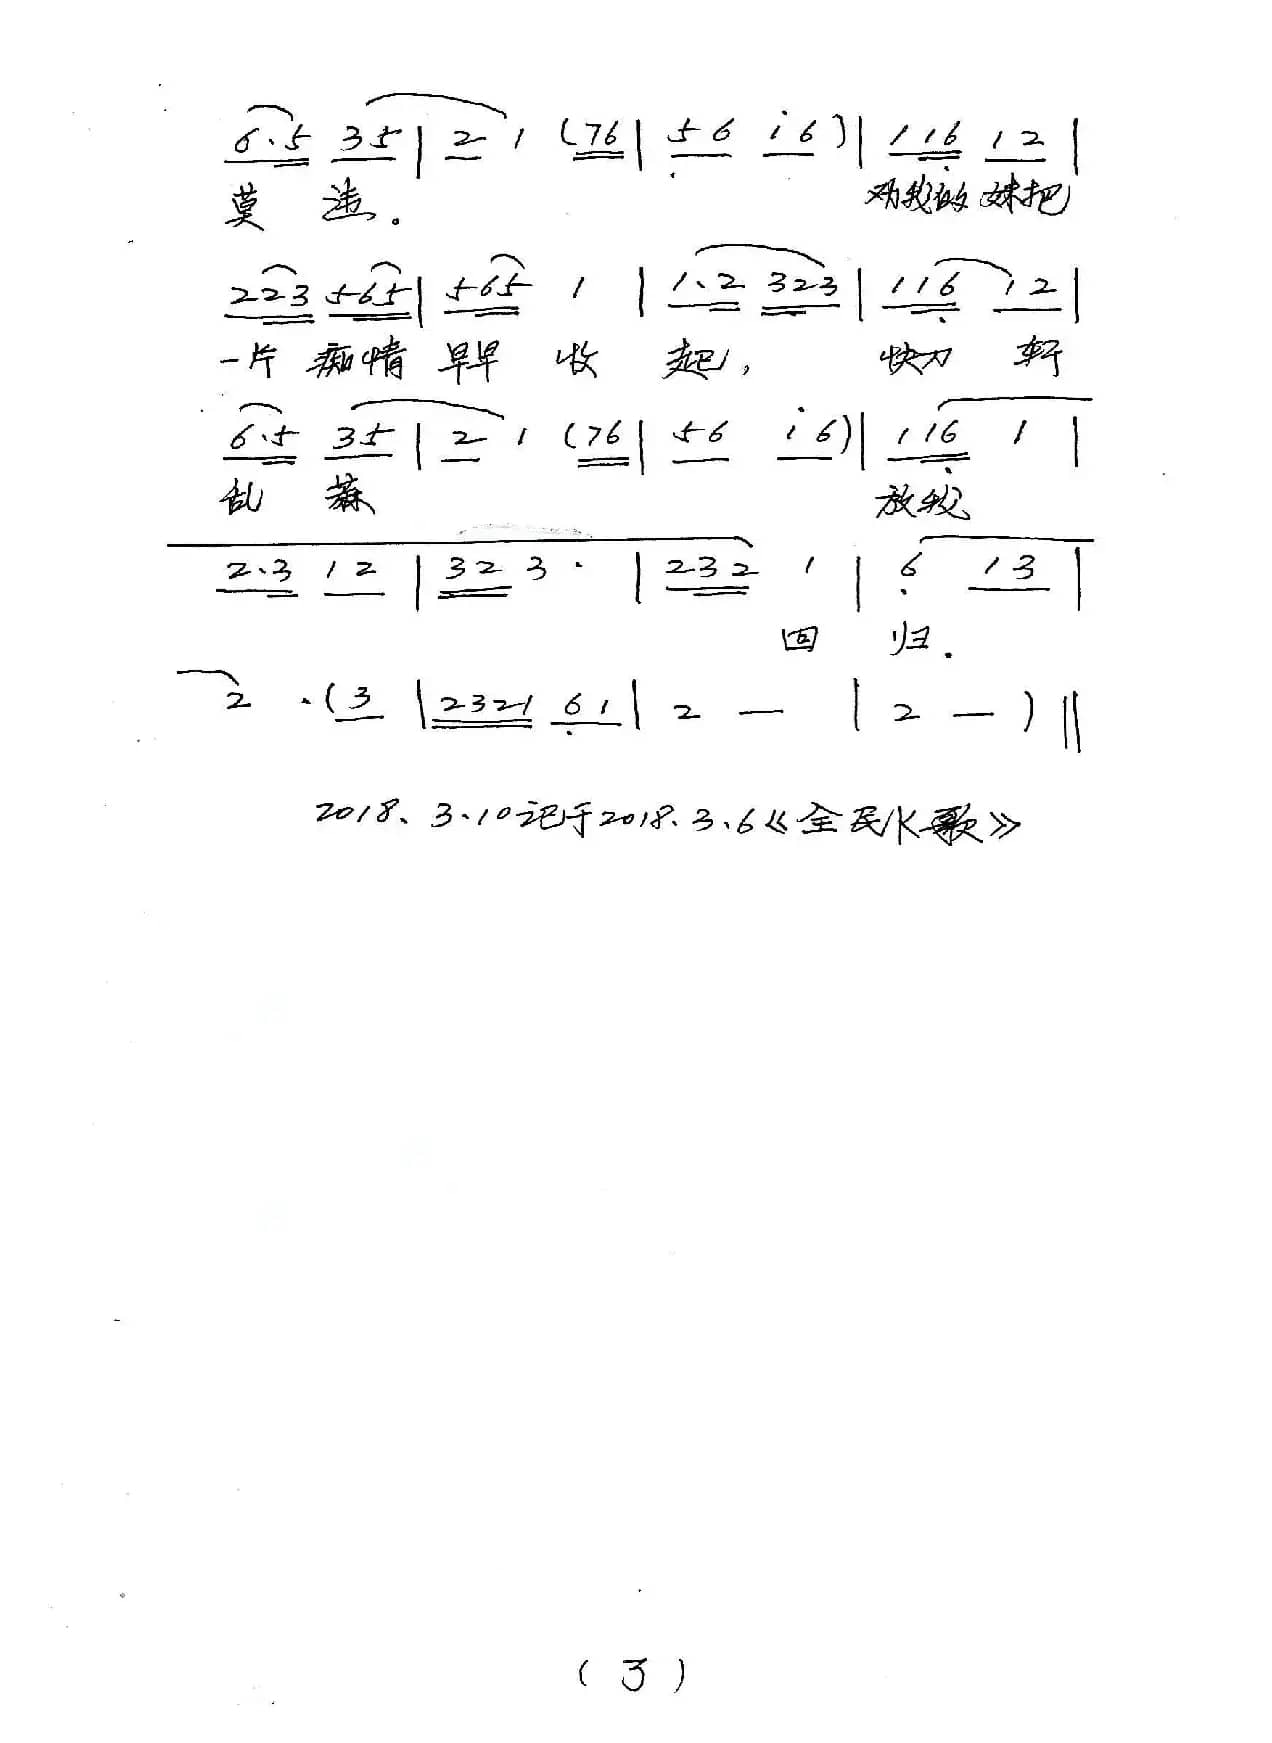 6·5 35 | 2 1 (76 | 56 i6) | 116 12 |
莫 违。 劝我的 妹把
223 565 | 565 1 | 1·2 323 | 116 12 |
一片 痴情 早早 收 起, 快刀 斩
6·5 35 | 2 1 (76 | 56 i6) | 116 1 |
乱 蔴 放我
2·3 12 | 32 3· | 232 1 | 6 13 |
回 归.
2 ·(3 | 2321 61 | 2 — | 2 —) ‖
2018、3·10记于2018.3、6《全民K歌》
(3)